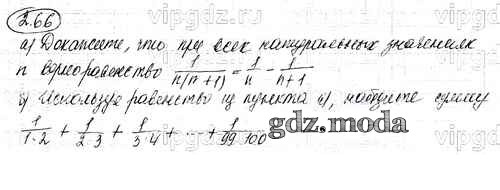 2.66
а) Докажите, что при всех натуральных значениях
n верно равенство 1/n(n+1) = 1/n - 1/n+1
б) Используя равенство из пункта а), найдите сумму
1/1·2 + 1/2·3 + 1/3·4 + ... + 1/99·100
gdz.moda
vipgdz.ru
vipgdz.ru
vipgdz.ru